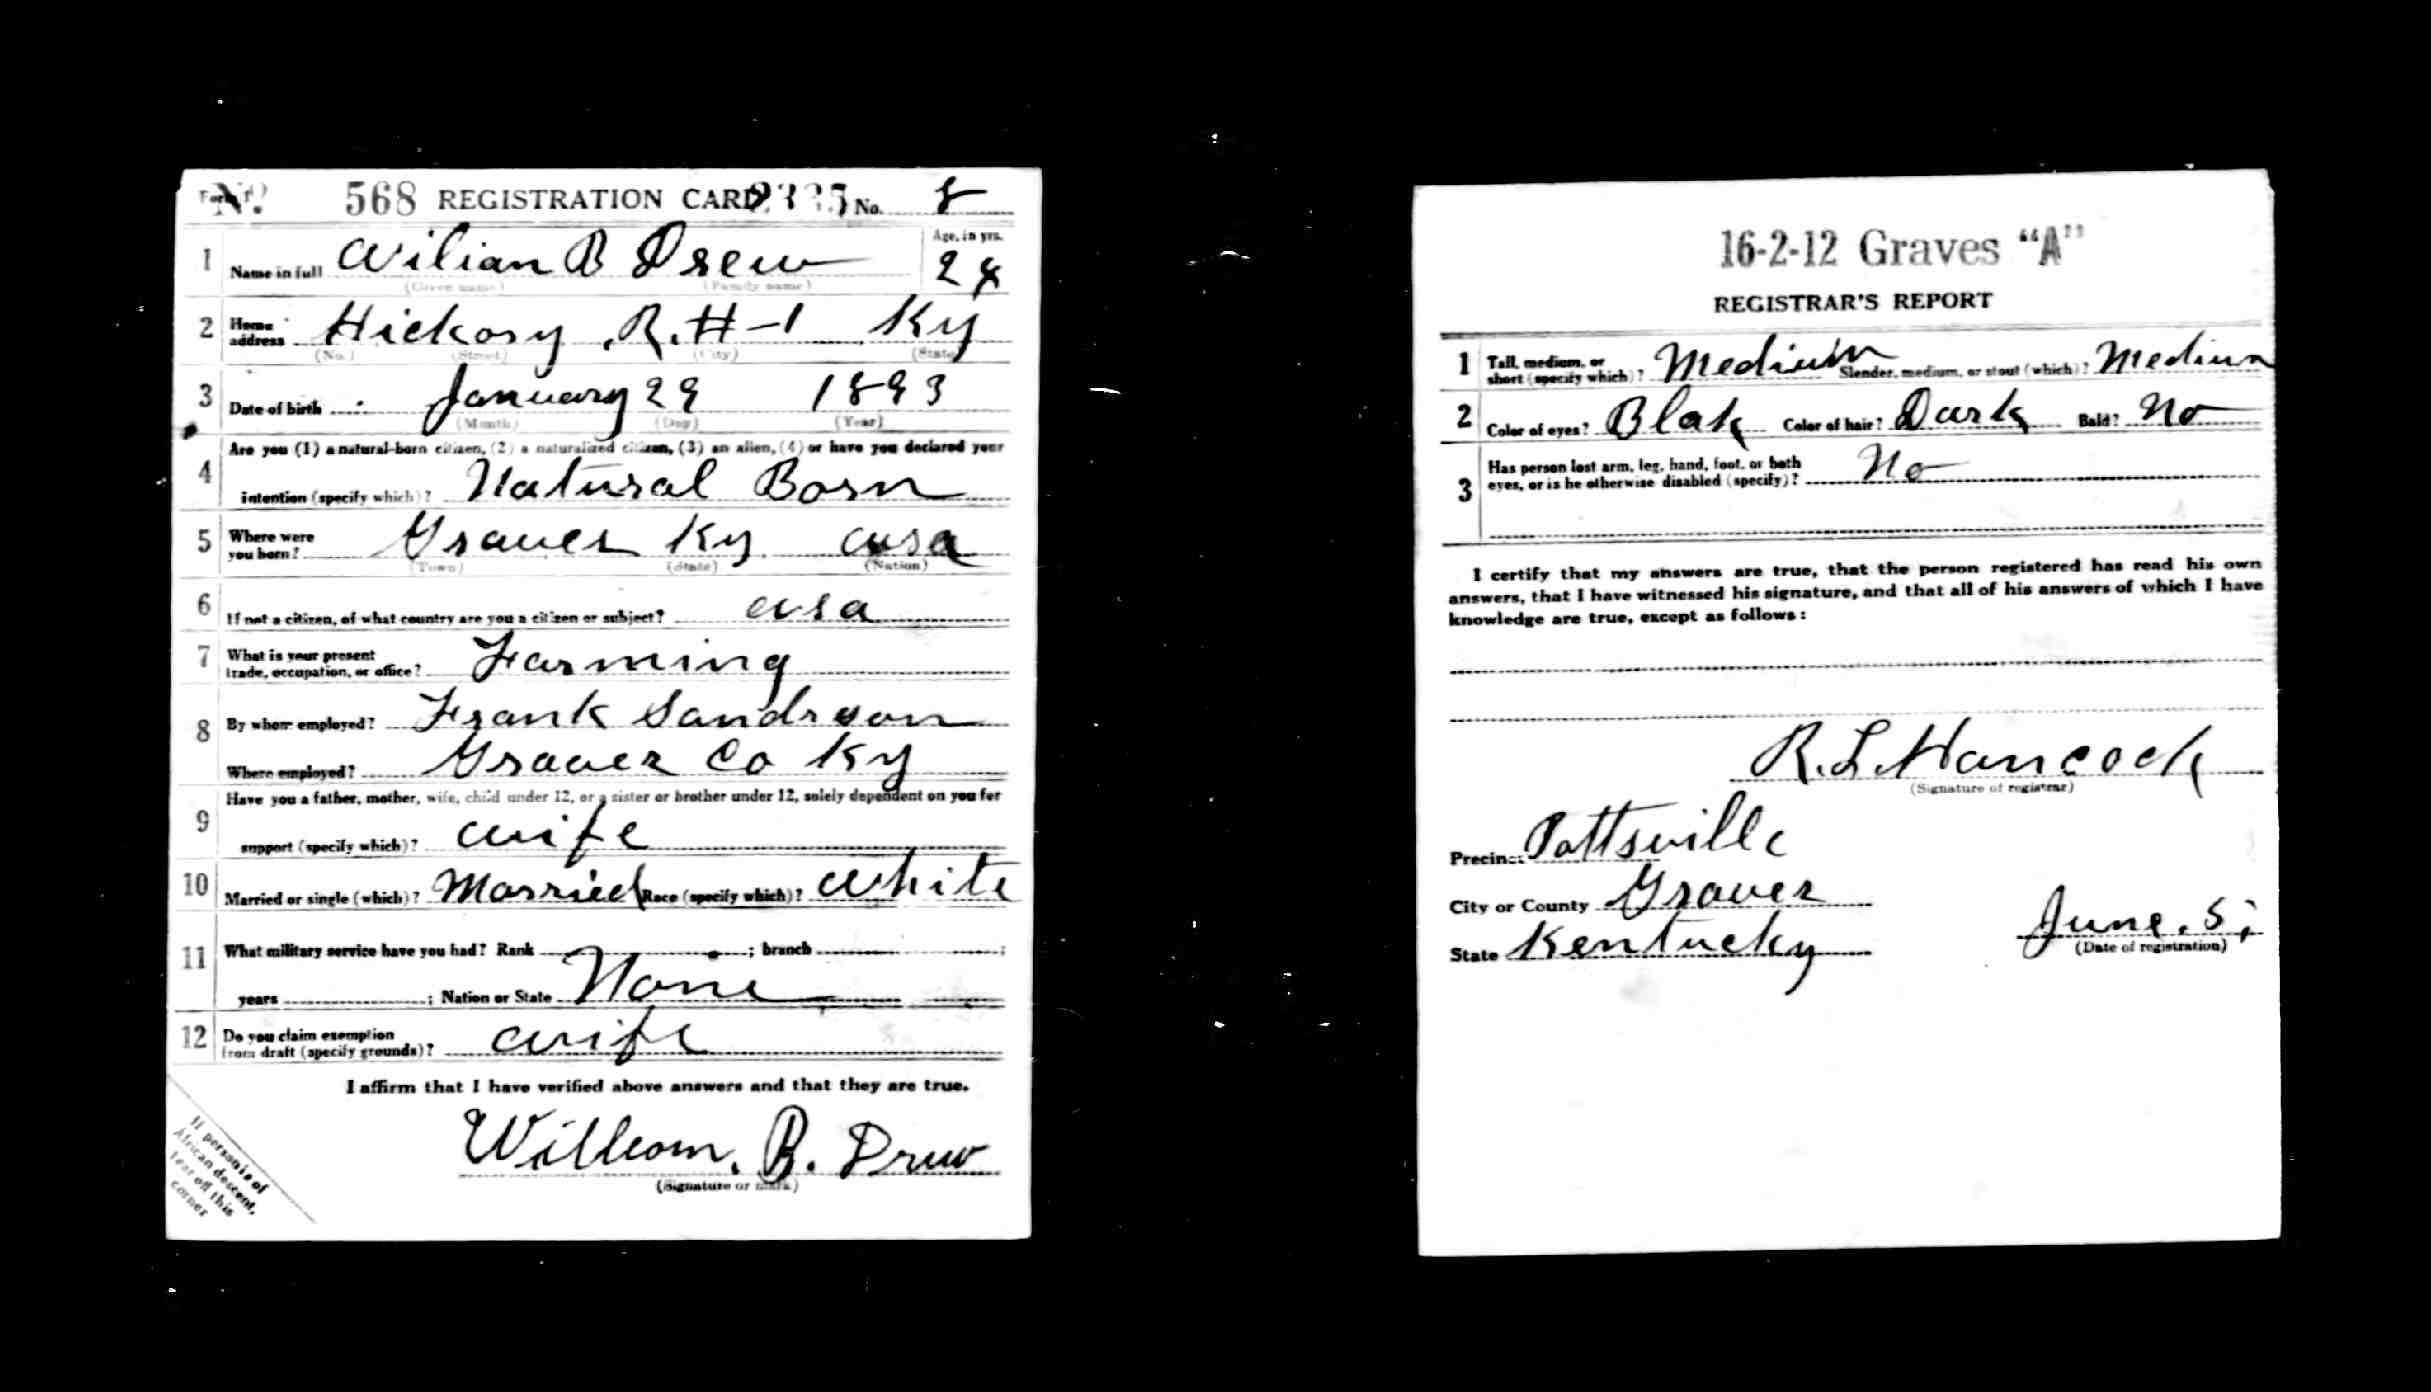 Form 1 No. 568 REGISTRATION CARD No. 8
1 Name in full Wilian B Drew Age, in yrs. 24
(Given name) (Family name)
2 Home address Hickory R.#-1 Ky
(No.) (Street) (City) (State)
3 Date of birth January 29 1893
(Month) (Day) (Year)
4 Are you (1) a natural-born citizen, (2) a naturalized citizen, (3) an alien, (4) or have you declared your
intention (specify which)? Natural Born
5 Where were you born? Graves Ky usa
(Town) (State) (Nation)
6 If not a citizen, of what country are you a citizen or subject? usa
7 What is your present
trade, occupation, or office? Farming
8 By whom employed? Frank Sandrson
Where employed? Graves Co Ky
9 Have you a father, mother, wife, child under 12, or a sister or brother under 12, solely dependent on you for
support (specify which)? wife
10 Married or single (which)? Married Race (specify which)? White
11 What military service have you had? Rank ; branch ;
years ; Nation or State None
12 Do you claim exemption
from draft (specify grounds)? wife
I affirm that I have verified above answers and that they are true.
William. B. Drew
(Signature or mark)
If person is of
African descent,
tear off this
corner
16-2-12 Graves "A"
REGISTRAR'S REPORT
1 Tall, medium, or
short (specify which)? Medium Slender, medium, or stout (which)? Medium
2 Color of eyes? Blak Color of hair? Dark Bald? No
3 Has person lost arm, leg, hand, foot, or both
eyes, or is he otherwise disabled (specify)? No
I certify that my answers are true, that the person registered has read his own
answers, that I have witnessed his signature, and that all of his answers of which I have
knowledge are true, except as follows:
R. L. Hancock
(Signature of registrar)
Precinct Pottsville
City or County Graves
State Kentucky June. 5;
(Date of registration)